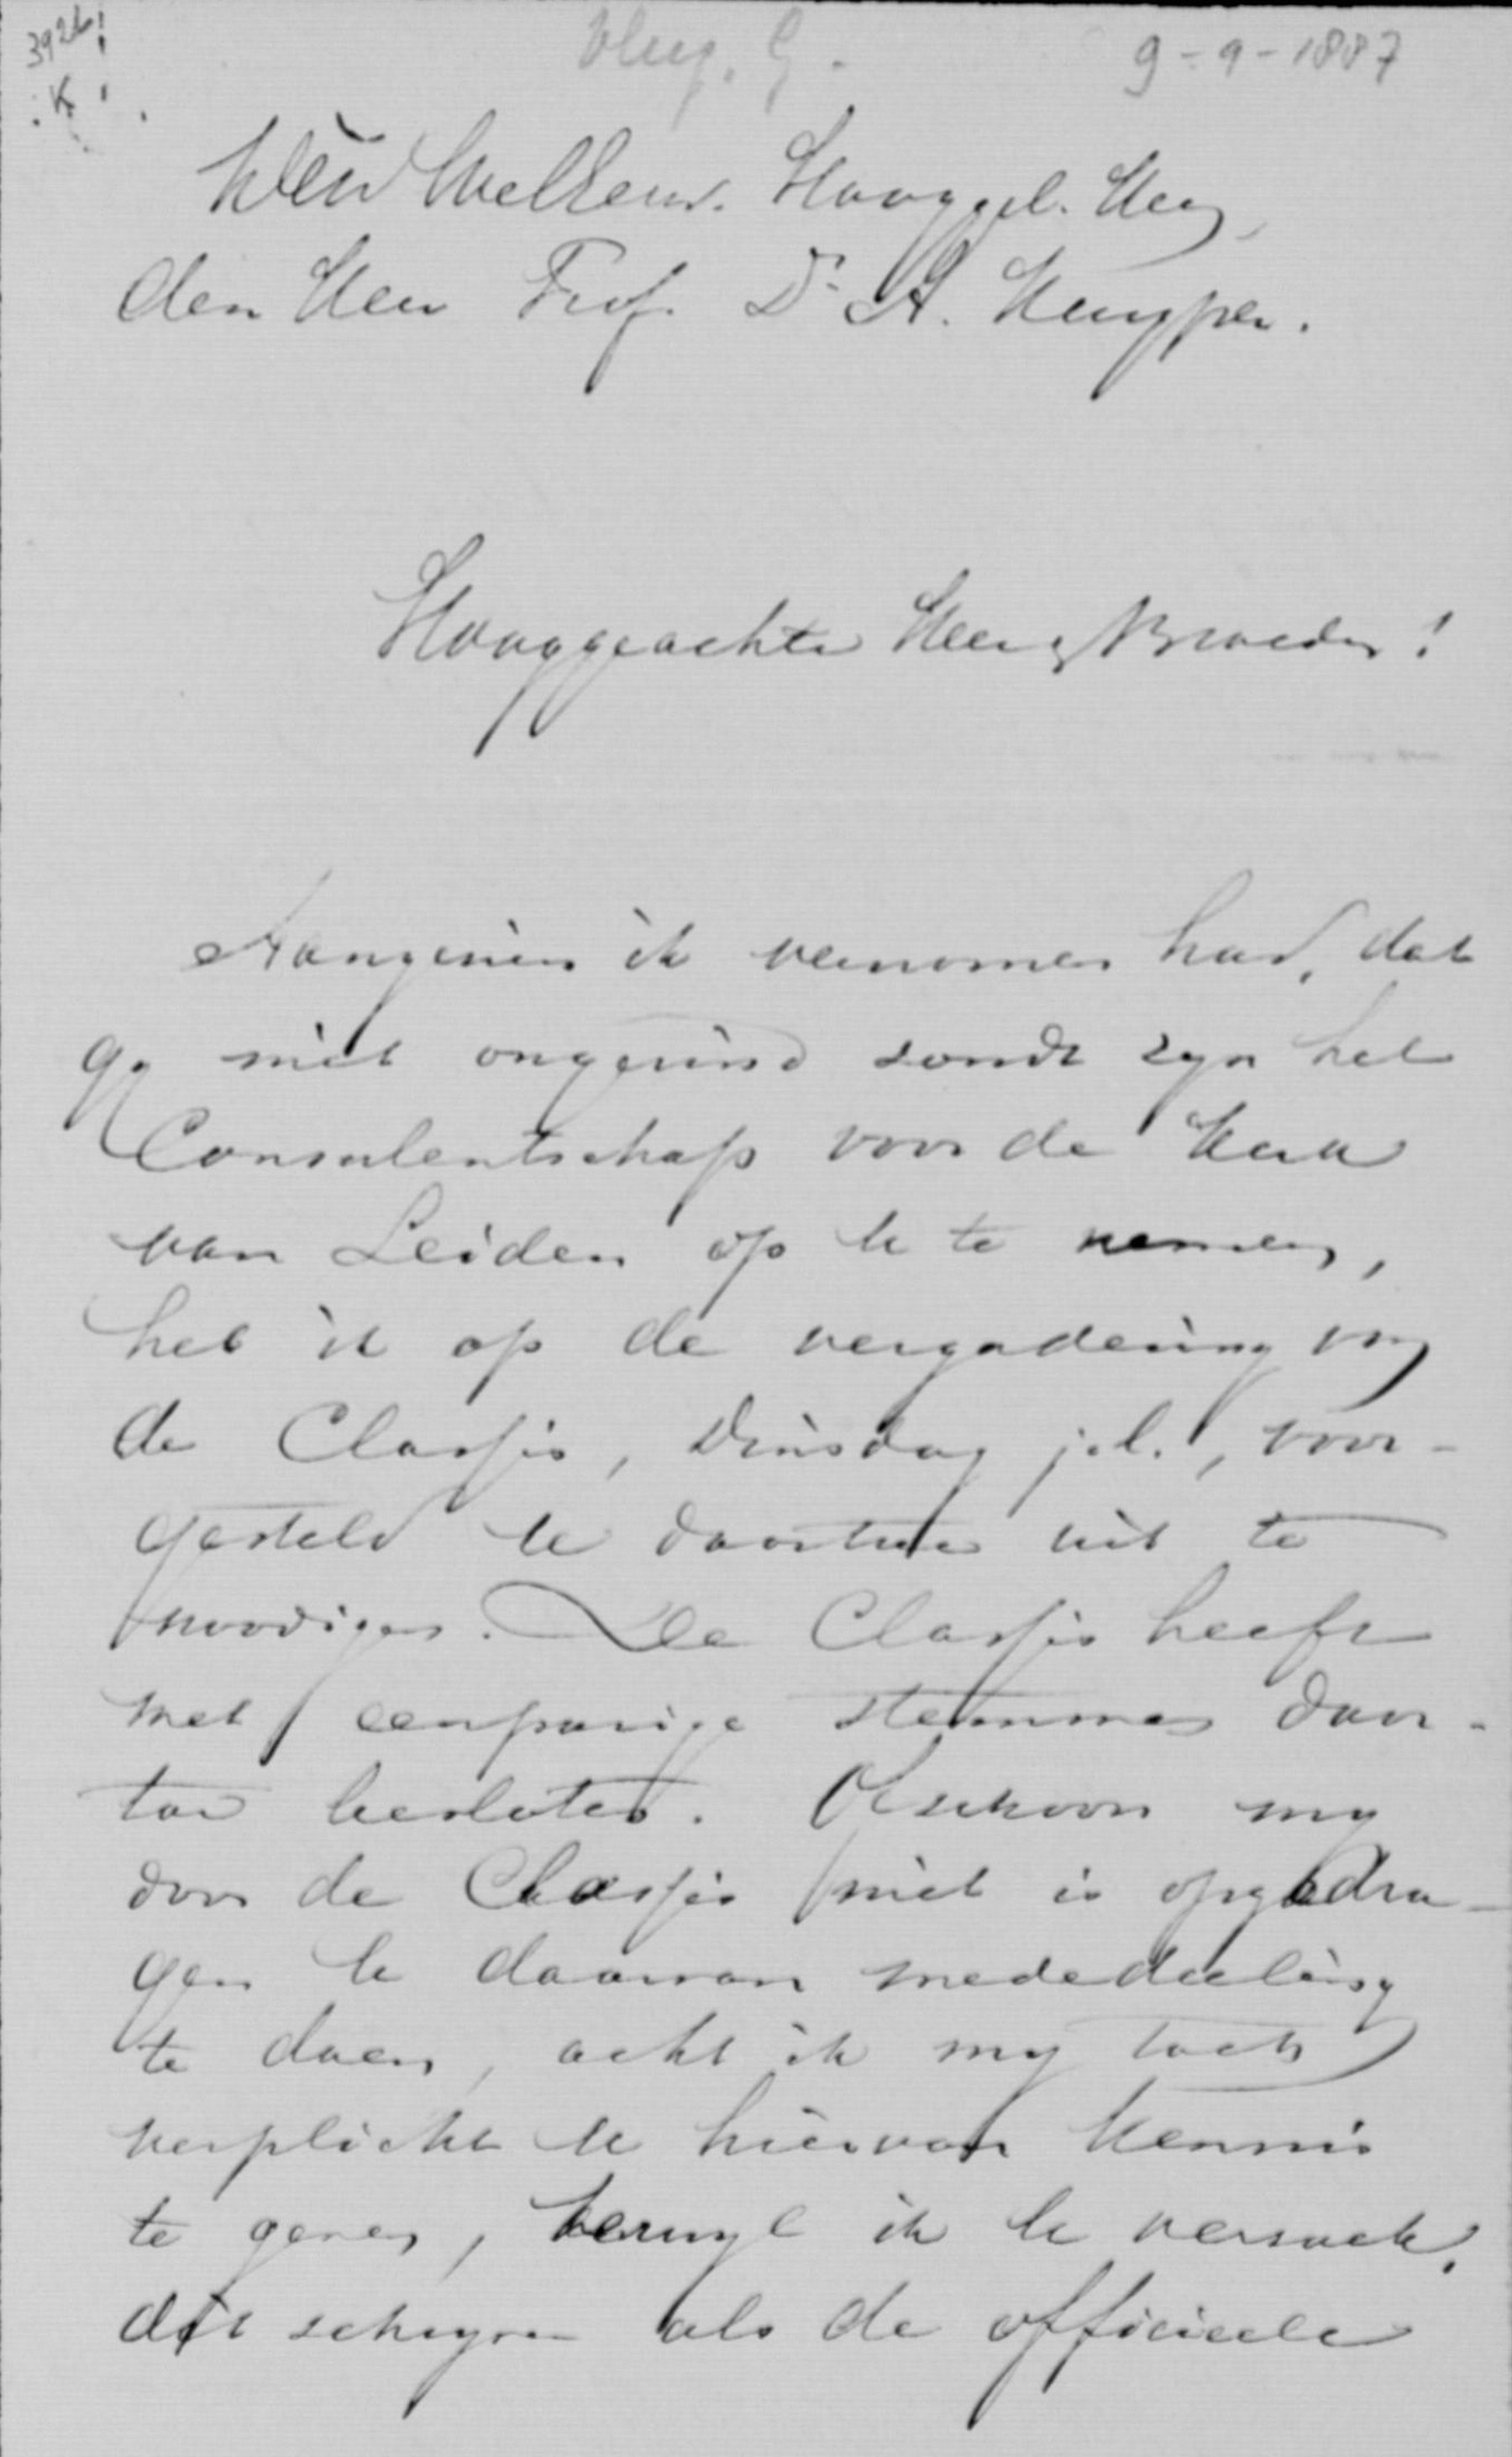 3926
K
Vlug, G.
9-9-1887
Den WelEerw. Hooggel. Heer,
den Heer Prof. Dr. A. Kuyper.
Hooggeachte Heer en Broeder!
Aangezien ik vernomen had, dat
gy niet ongezind zoudt zyn het
Consulentschap voor de Kerk
van Leiden op U te nemen,
heb ik op de vergadering van
de Classis, Dinsdag j.l., voor-
gesteld U daartoe uit te
noodigen. De Classis heeft
met eenparige stemmen daar-
toe besloten. Ofschoon my
door de Classis niet is opgedra-
gen U daarvan mededeeling
te doen, acht ik my toch
verplicht U hiervan kennis
te geven, terwyl ik U verzoek,
dit schryven als de officieele